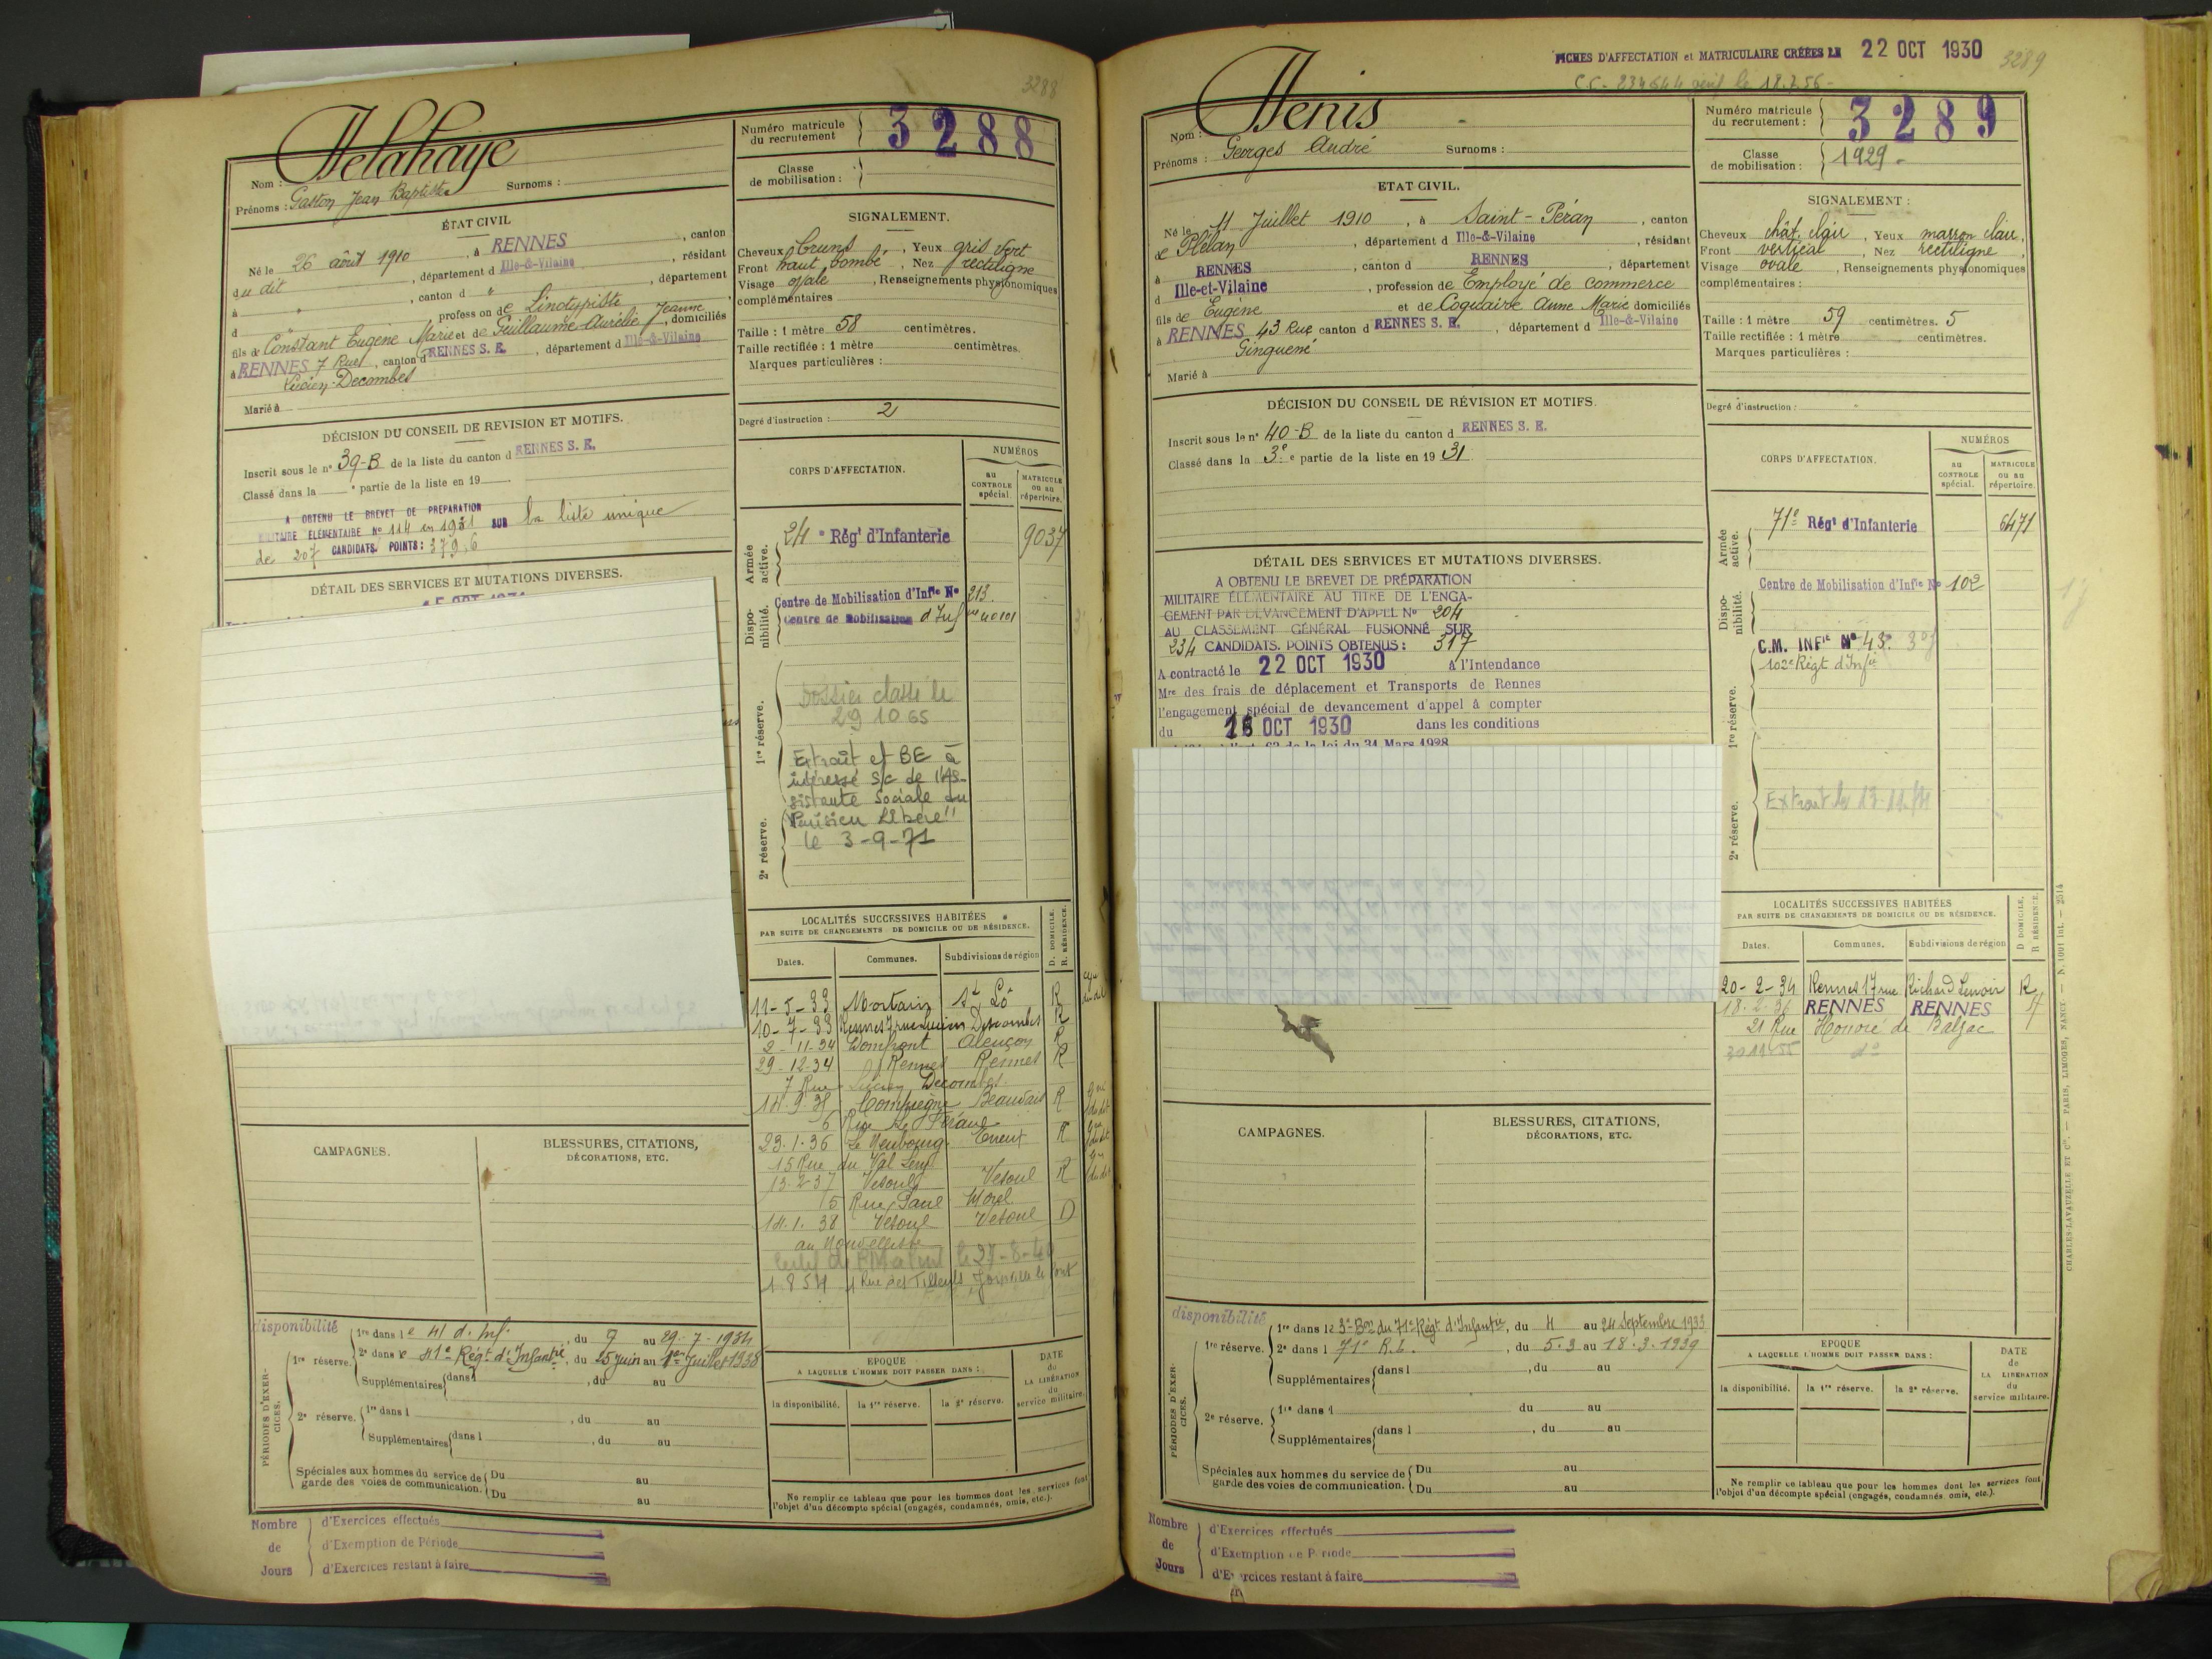 3288
Delahaye
Nom :
Prénoms : Gaston Jean Baptiste Surnoms :
ÉTAT CIVIL
Né le 26 août 1910 , à RENNES , canton
du dit , département d Ille-&-Vilaine , résidant
à " , canton d " , département
d " , profession de Linotypiste
fils de Constant Eugène Marie et de Guillaume Aurélie Jeanne , domiciliés
à RENNES 7 Rue , canton d RENNES S. E. , département d Ille-&-Vilaine
Lucien Decombes
Marié à
DÉCISION DU CONSEIL DE REVISION ET MOTIFS.
Inscrit sous le n° 39-B de la liste du canton d RENNES S. E.
Classé dans la e partie de la liste en 19
A OBTENU LE BREVET DE PREPARATION
MILITAIRE ELEMENTAIRE No 114 en 1931 SUR la liste unique
de 207 CANDIDATS. POINTS : 379,6
DÉTAIL DES SERVICES ET MUTATIONS DIVERSES.
CAMPAGNES.
BLESSURES, CITATIONS,
DÉCORATIONS, ETC.
disponibilité
PÉRIODES D'EXERCICES.
1re réserve. 1re dans le 41 d. Inf. , du 9 au 29-7-1934
2e dans le 41e Régt d'Infanterie , du 25 juin au 1er Juillet 1938
Supplémentaires dans l , du au
2e réserve. 1re dans l , du au
Supplémentaires dans l , du au
Spéciales aux hommes du service de garde des voies de communication. Du au
Du au
Nombre de Jours
d'Exercices effectués
d'Exemption de Période
d'Exercices restant à faire
Numéro matricule du recrutement 3288
Classe de mobilisation :
SIGNALEMENT.
Cheveux bruns , Yeux gris vert
Front haut bombé , Nez rectiligne
Visage ovale , Renseignements physionomiques
complémentaires
Taille : 1 mètre 58 centimètres.
Taille rectifiée : 1 mètre centimètres.
Marques particulières :
Degré d'instruction : 2
CORPS D'AFFECTATION.
NUMÉROS
au CONTROLE spécial.
MATRICULE ou au répertoire.
Armée active.
24e Régt d'Infanterie 9037
Dispo-nibilité.
Centre de Mobilisation d'Infie No 213
Centre de Mobilisation d'Inf
1re réserve.
Dossier classé le
29 10 65
Extrait et BE à
intéressé s/c de l'As-
sistante Sociale du
"Parisien Libéré"
le 3-9-71
2e réserve.
LOCALITÉS SUCCESSIVES HABITÉES
PAR SUITE DE CHANGEMENTS DE DOMICILE OU DE RÉSIDENCE.
D. DOMICILE. R. RÉSIDENCE.
Dates. Communes. Subdivisions de région
11-5-33 Mortain St Lô R
10-7-33 Rennes 7 rue Lucien Decombes R
2-11-34 Domfront Alençon R
29-12-34 Rennes Rennes R
7 Rue Lucien Decombes
14.9.35 Compiègne Beauvais R
23.1.36 Le Neubourg Evreux R
15 Rue du Val
13.2.37 Vesoul Vesoul R
15 Rue Paul Morel
14.1.38 Vesoul Vesoul D
au Nouvelliste
le 27-8-40
1.8.54 4 Rue des Tilleuls Joinville le Pont
EPOQUE
A LAQUELLE L'HOMME DOIT PASSER DANS :
la disponibilité. la 1re réserve. la 2e réserve.
DATE de LA LIBÉRATION du service militaire.
Ne remplir ce tableau que pour les hommes dont les services font
l'objet d'un décompte spécial (engagés, condamnés, omis, etc.).
FICHES D'AFFECTATION et MATRICULAIRE CRÉÉES LE 22 OCT 1930
3289
C.C. 234644 le 18.7.56
Denis
Nom :
Prénoms : Georges André Surnoms :
ETAT CIVIL.
Né le 4 Juillet 1910 , à Saint-Péran , canton
de Plélan , département d Ille-&-Vilaine , résidant
à RENNES , canton d RENNES , département
d Ille-et-Vilaine , profession de Employé de commerce
fils de Eugène et de Coquaire Anne Marie domiciliés
à RENNES 43 Rue canton d RENNES S. E. , département d Ille-&-Vilaine
Ginguené
Marié à
DÉCISION DU CONSEIL DE RÉVISION ET MOTIFS.
Inscrit sous le n° 40-B de la liste du canton d RENNES S. E.
Classé dans la 3e e partie de la liste en 19 31
DÉTAIL DES SERVICES ET MUTATIONS DIVERSES.
A OBTENU LE BREVET DE PRÉPARATION
MILITAIRE ÉLÉMENTAIRE AU TITRE DE L'ENGA-
GEMENT PAR DEVANCEMENT D'APPEL No 204
AU CLASSEMENT GÉNÉRAL FUSIONNÉ SUR
234 CANDIDATS. POINTS OBTENUS : 317
A contracté le 22 OCT 1930 à l'Intendance
Mre des frais de déplacement et Transports de Rennes
l'engagement spécial de devancement d'appel à compter
du OCT 1930 dans les conditions
l'art. 63 de la loi du 31 Mars 1928
CAMPAGNES.
BLESSURES, CITATIONS,
DÉCORATIONS, ETC.
disponibilité
PÉRIODES D'EXERCICES.
1re réserve. 1re dans le 3e Bon du 71e Régt d'Infanterie , du 4 au 24 Septembre 1933
2e dans l 71e R.I. , du 5.3 au 18.3.1939
Supplémentaires dans l , du au
2e réserve. 1re dans l du au
Supplémentaires dans l , du au
Spéciales aux hommes du service de garde des voies de communication. Du au
Du au
Nombre de Jours
d'Exercices effectués
d'Exemption de Période
d'Exercices restant à faire
Numéro matricule du recrutement : 3289
Classe de mobilisation : 1929
SIGNALEMENT :
Cheveux chât. clair , Yeux marron clair,
Front vertical , Nez rectiligne
Visage ovale , Renseignements physionomiques
complémentaires :
Taille : 1 mètre 59 centimètres. 5
Taille rectifiée : 1 mètre centimètres.
Marques particulières :
Degré d'instruction :
CORPS D'AFFECTATION.
NUMÉROS
au CONTROLE spécial.
MATRICULE ou au répertoire.
Armée active.
71e Régt d'Infanterie 6471
Dispo-nibilité.
Centre de Mobilisation d'Infie No 102
C.M. INFie No 43
102e Régt d'Infie
1re réserve.
2e réserve.
Extrait le
LOCALITÉS SUCCESSIVES HABITÉES
PAR SUITE DE CHANGEMENTS DE DOMICILE OU DE RÉSIDENCE.
D DOMICILE. R RÉSIDENCE.
Dates. Communes. Subdivisions de région
20-2-34 Rennes 17 rue Richard Lenoir R
18.2.36 RENNES RENNES
21 Rue Honoré de Balzac
do
EPOQUE
A LAQUELLE L'HOMME DOIT PASSER DANS :
la disponibilité. la 1re réserve. la 2e réserve.
DATE de LA LIBÉRATION du service militaire.
Ne remplir ce tableau que pour les hommes dont les services font
l'objet d'un décompte spécial (engagés, condamnés, omis, etc.).
CHARLES-LAVAUZELLE ET Cie. — PARIS, LIMOGES, NANCY. — N. 1001 int. — 2514